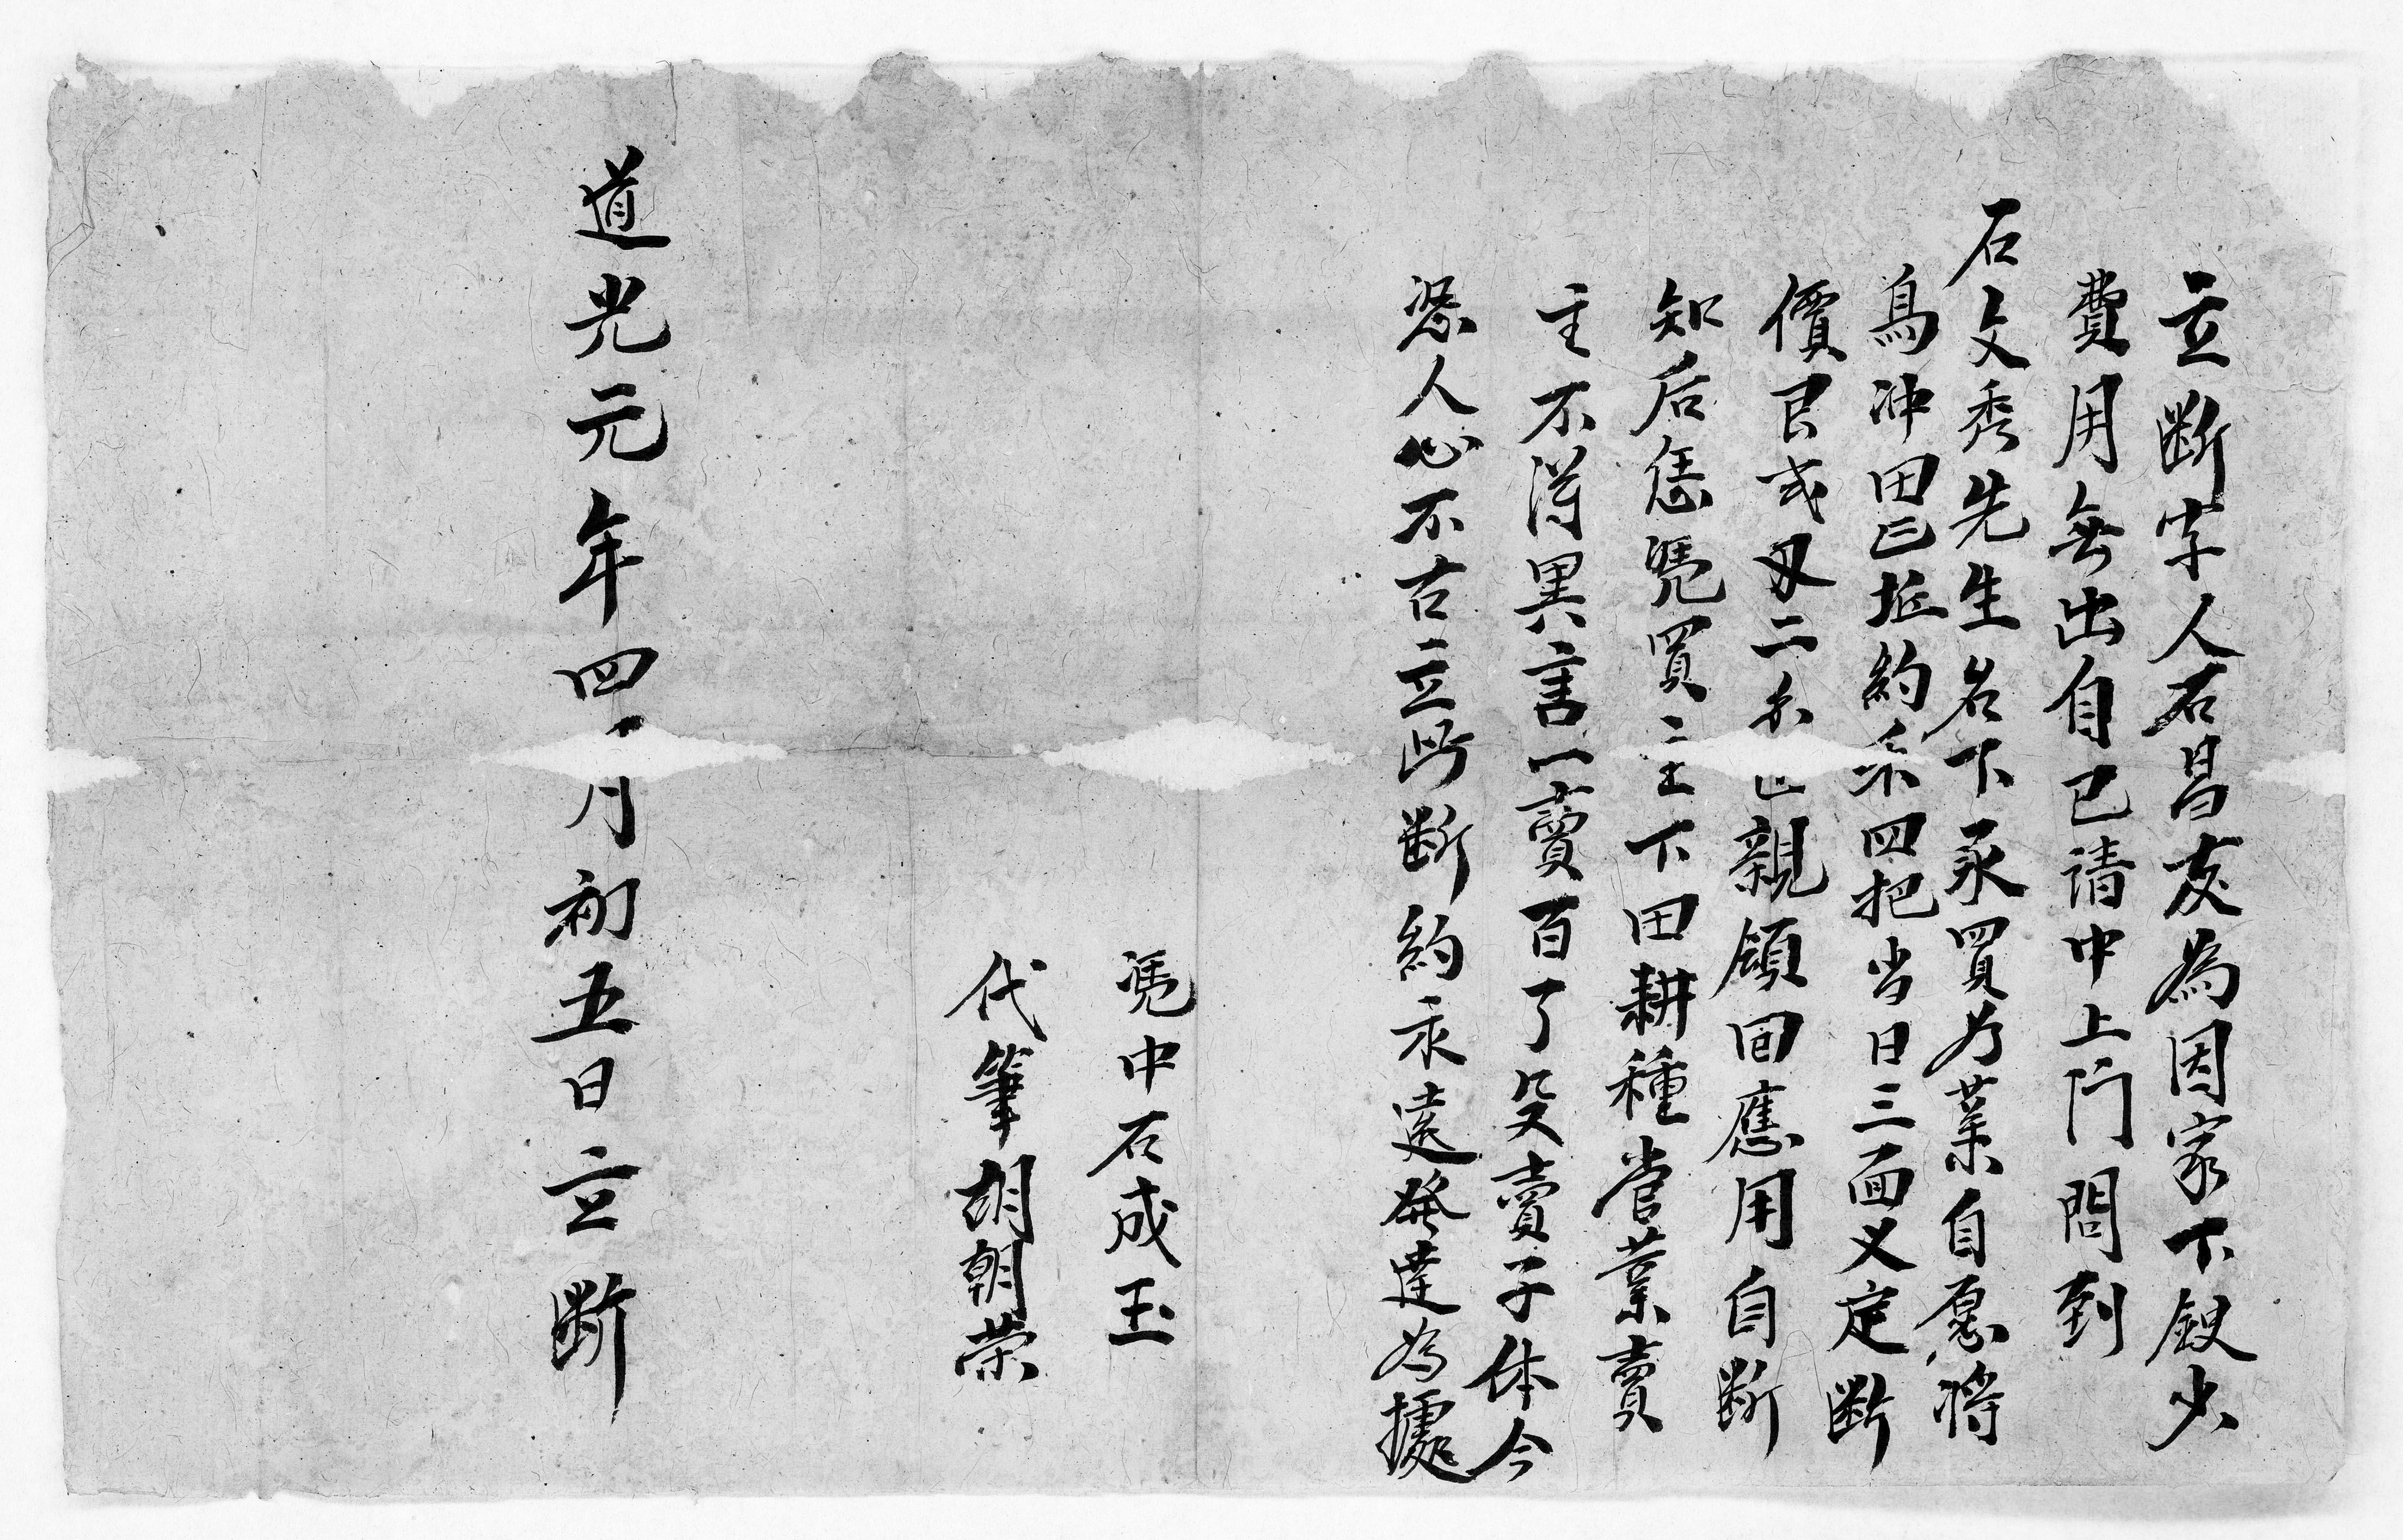 立断字人石昌友為因家下缺少
費用無出自己請中上門問到
石文秀先生名下承買为業自愿将
鳥冲田坵約禾四把当日三面义定断
價艮弍刄二
親領回應用自断
知后恁凴買主下田耕種管業賣
主不得異言一賣百了父賣子休今
恐人心不古立此断約永遠發達為據
凴中石成玉
代筆胡朝荣
道光元年四月初五日立断